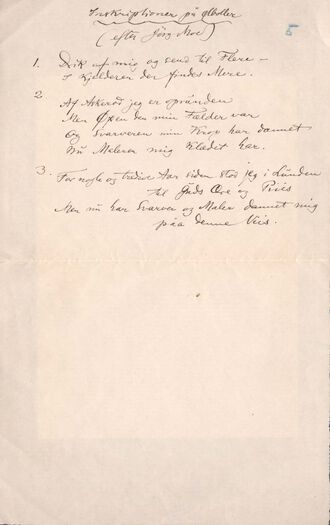 Inskriptioner på ølboller
5
(efter Jörg. Moe)
1. Drik af mig og send til Flere –
I Kjelderen der findes Mere.
2. Af Askerod jeg er oprunden
Men Øxen den min Fælder var
Og Svarveren min Krop har dannet
Nu Maleren mig Klædet har.
3. For nogle og tredive Aar siden stod jeg i Lunden
til Guds Ære og Priis
Men nu har Svarver og Maler dannet mig
paa denne Viis.